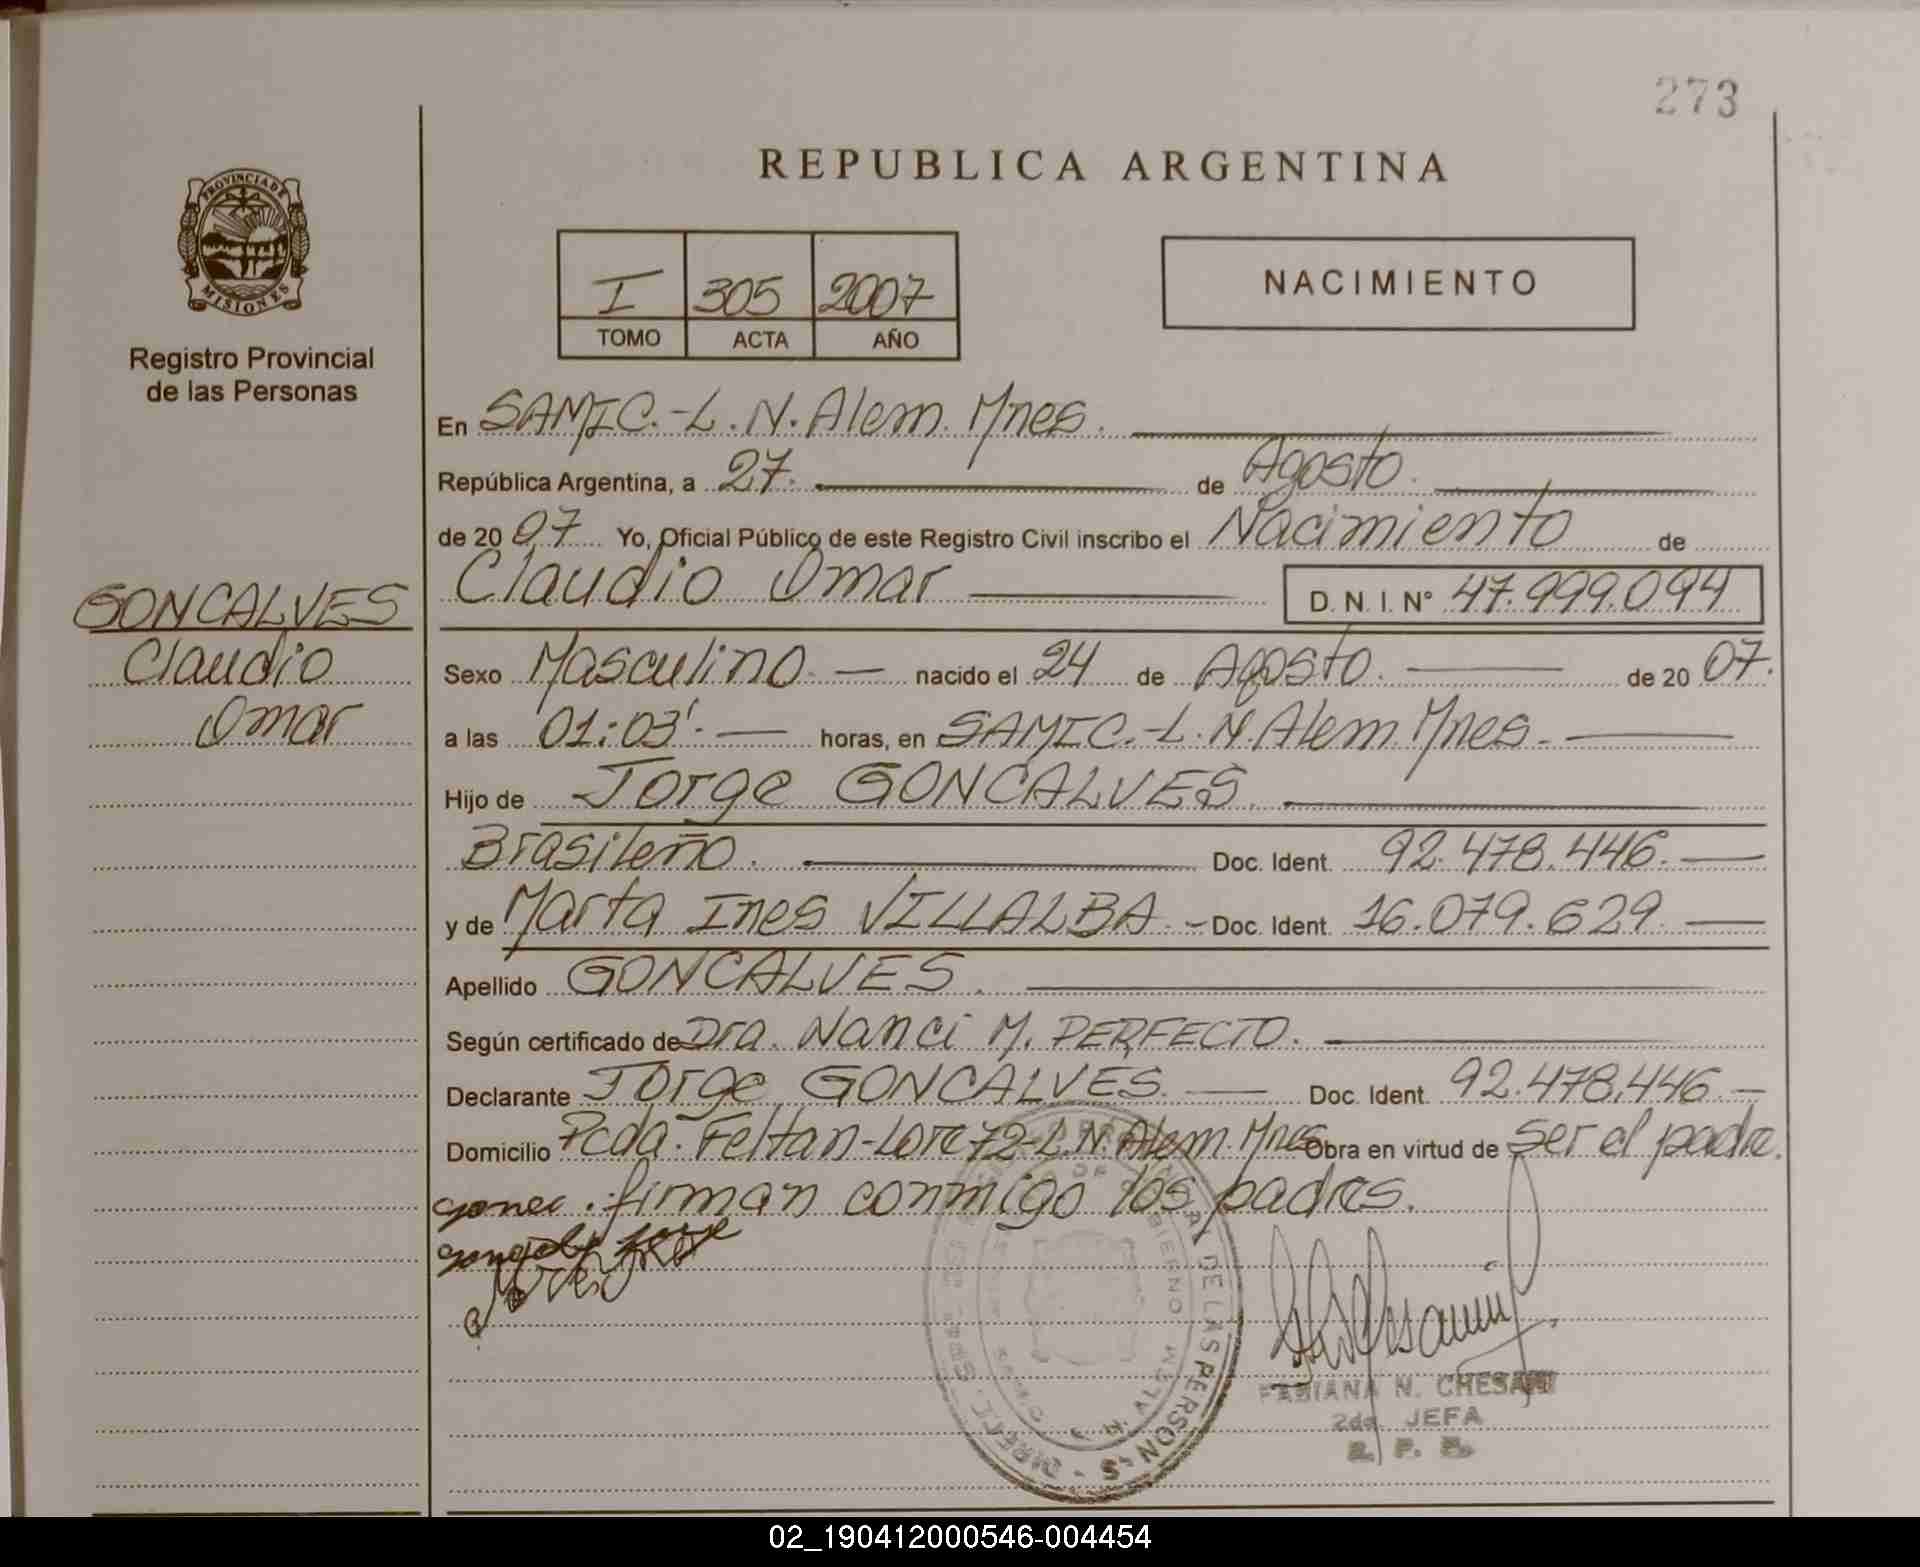 273
REPUBLICA ARGENTINA
PROVINCIA DE
MISIONES
Registro Provincial
de las Personas
I 305 2007
TOMO ACTA AÑO
NACIMIENTO
En SAMIC.-L.N.Alem.Mnes.
República Argentina, a 27. de Agosto.
de 2007 Yo, Oficial Público de este Registro Civil inscribo el Nacimiento de
Claudio Omar D.N.I.Nº 47.999.094
GONCALVES
Claudio
Omar
Sexo Masculino. nacido el 24 de Agosto. de 2007.
a las 01:03'. horas, en SAMIC.-L.N.Alem.Mnes.
Hijo de Jorge GONCALVES.
Brasileño. Doc. Ident. 92.478.446.
y de Marta Ines VILLALBA. Doc. Ident. 16.079.629.
Apellido GONCALVES.
Según certificado de Dra. Nanci M. PERFECTO.
Declarante Jorge GONCALVES. Doc. Ident. 92.478.446
Domicilio Pcda. Feltan-Lote 72-L.N.Alem.Mnes Obra en virtud de Ser el padre.
firman conmigo los padres.
DE LAS PERSONAS
L. N. ALEM
FABIANA N. CHESANI
2da. JEFA
02_190412000546-004454